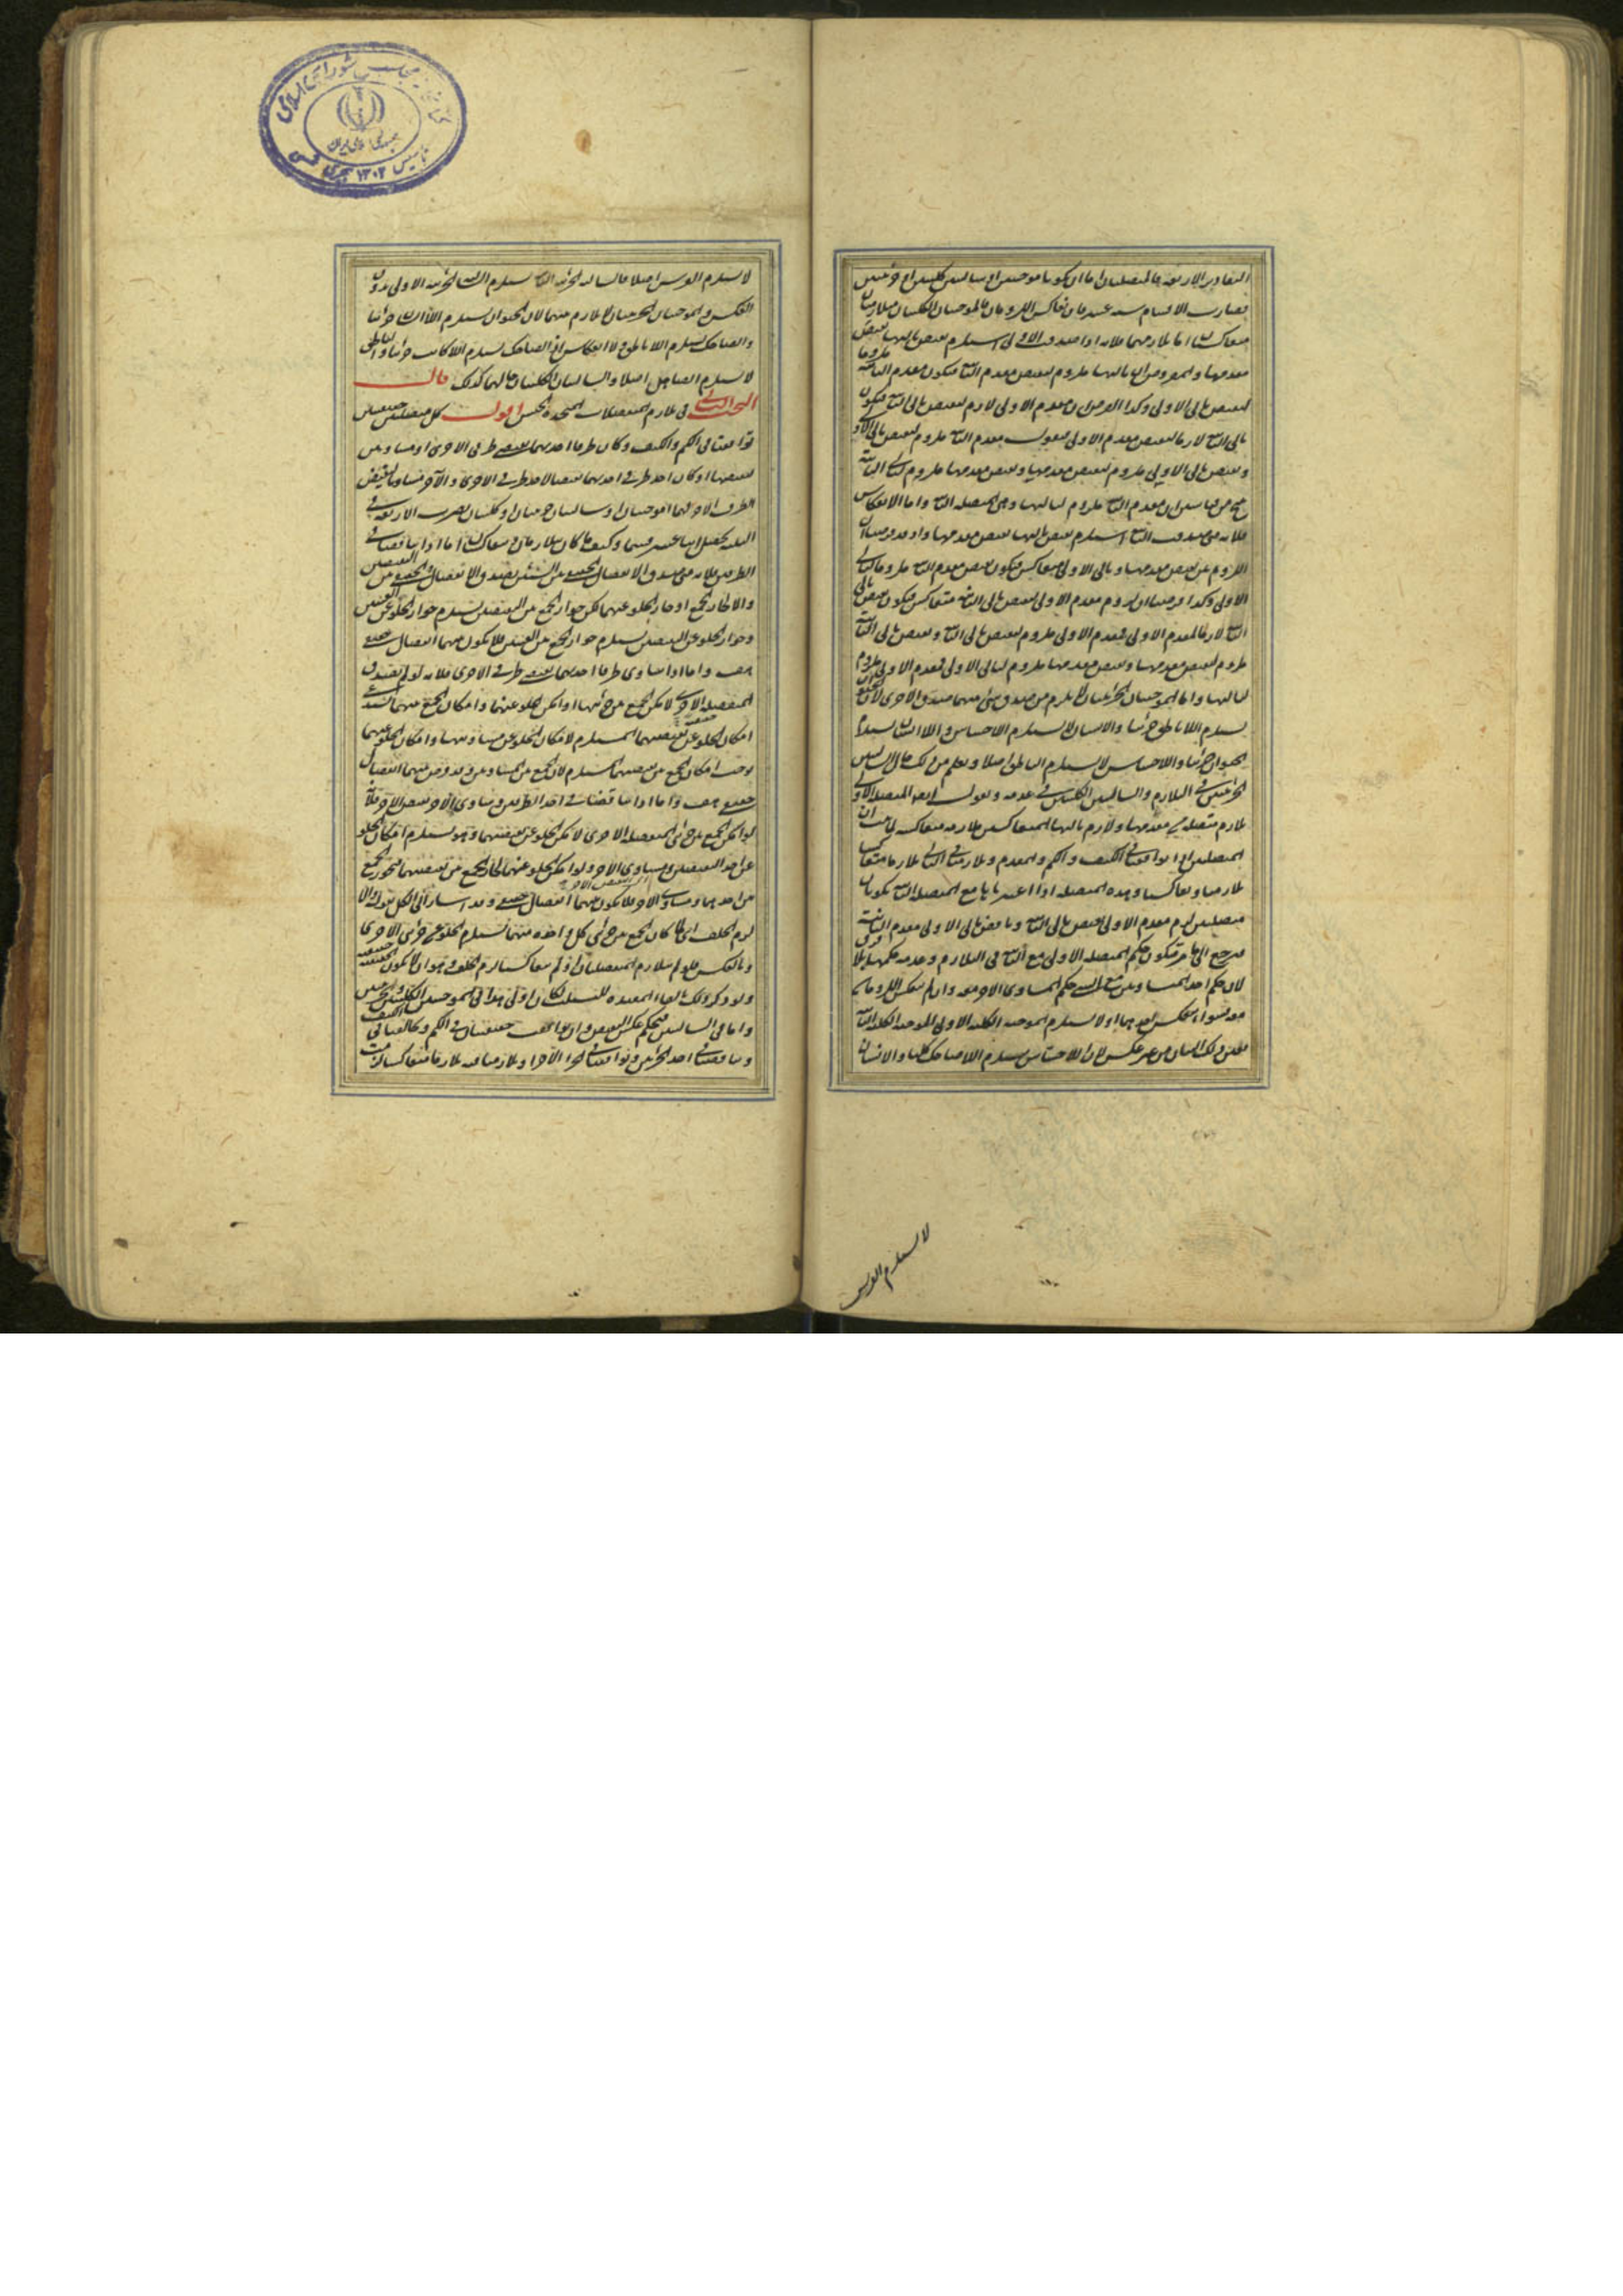 التقادير الاربعة فالمتصلتان اما ان يكونا موجبتين او سالبتين كليتين او جزئيتين
فصارت الاقسام ستة عشر فان تعاكس اللزومان فالموجبتان الكليتان متلازمتان
متعاكستان اما تلازمهما فلانه اذا صدقت الاولى استلزم نقيض تاليها نقيض
مقدمها والمفروض ان تاليها ملزوم لنقيض مقدم الثانية فيكون مقدم الثانية ملزوما
لنقيض تالى الاولى وكذا الفرض ان مقدم الاولى لازم لنقيض تالى الثانية فيكون
تالى الثانية لازما لنقيض مقدم الاولى فنقول مقدم الثانية ملزوم لنقيض تالى الاولى
ونقيض تالى الاولى ملزوم لنقيض مقدمها ونقيض مقدمها ملزوم لتالى الثانية
ينتج من قياسين ان مقدم الثانية ملزوم لتاليها وهى المتصلة الثانية واما الانعكاس
فلانه متى صدقت الثانية استلزم نقيض تاليها نقيض مقدمها واذ قد فرضنا ان
اللزوم بين نقيض مقدمها وتالى الاولى متعاكس فيكون نقيض مقدم الثانية ملزوما لتالى
الاولى وكذا فرضنا ان لزوم مقدم الاولى لنقيض تالى الثانية متعاكس فيكون نقيض تالى
الثانية لازما لمقدم الاولى فمقدم الاولى ملزوم لنقيض تالى الثانية ونقيض تالى الثانية
ملزوم لنقيض مقدمها ونقيض مقدمها ملزوم لتالى الاولى فمقدم الاولى ملزوم
لتاليها واما الموجبتان الجزئيتان فلا يلزم من صدق شئ منهما صدق الاخرى لان
يستلزم اللاناطق جزئيا والانسان لا يستلزم الاحساس واللاانسان يستلزم
الحيوان جزئيا واللاحساس لا يستلزم الناطق اصلا ويعلم من ذلك حال السالبتين
الجزئيتين فى التلازم والسالبتين الكليتين فى عدمه ونقول المتصلة الاولى
تلازم متصلة من مقدمها ولازم تاليها المتعاكس ملازمة متعاكسة لما ثبت ان
المتصلتين اذا توافقتا فى الكيف والكم والمقدم وتلازمتا فى التالى تلازما متعاكسا
تلازمتا وتعاكستا وهذه المتصلة اذا اعتبرناها مع المتصلة الثانية تكونان
متصلتين لزم مقدم الاولى نقيض تالى الثانية وناقض تالى الاولى مقدم الثانية
فيرجع الى ما مر فيكون حكم المتصلة الاولى مع الثانية فى التلازم وعدمه حكمها
لان حكم احد المتساويين مع الشئ حكم المساوى الاخر معه وان لم ينعكس اللزومان
الموجبة الكلية الاولى للموجبة الكلية الثانية
من غير عكس لان اللاحساس يستلزم اللاضاحك كليا والانسان
لا يستلزم الفرس
لا يستلزم الفرس اصلا فالسالبة الجزئية الثانية يستلزم السالبة الجزئية الاولى بدون
العكس والموجبتان الجزئيتان لا تلازم بينهما لان الحيوان يستلزم اللاانسان جزئيا
والضاحك يستلزم اللاناطق ولا انعكاس اذ الضاحك يستلزم اللاكاتب جزئيا والناطق
لا يستلزم الصاهل اصلا والسالبتان الكليتان حالهما كذلك قال
البحث الثانى فى تلازم المنفصلات المتحدة الجنس اقول كل منفصلتين حقيقيتين
توافقتا فى الكم والكيف وكان طرفا احديهما نقيضى طرفى الاخرى او مساويين
لنقيضهما او كان احد طرفى احديهما نقيضا لاحد طرفى الاخرى والآخر مساويا لنقيض
الطرف الاخر فهما اما موجبتان او سالبتان جزئيتان او كليتان بضرب الاربعة فى
الثلثة يحصل اثنا عشر قسما وكيف ما كان يتلازمان ويتعاكسان اما اذا تناقضتا فى
الطرفين فلانه متى صدق الانفصال الحقيقى بين الشيئين يصدق الانفصال الحقيقى بين النقيضين
والا لجاز الجمع او جاز الخلو عنهما لكن جواز الجمع بين النقيضين يستلزم جواز الخلو عن العينين
وجواز الخلو عن النقيضين يستلزم جواز الجمع بين العينين فلا يكون بينهما انفصال حقيقى
هف واما اذا ساوى طرفا احديهما نقيضى طرفى الاخرى فلانه لو لم يصدق
المنفصلة الاخرى لامكن الجمع بين جزئيها او امكن الخلو عنهما وامكان الجمع بينهما يستدعى
امكان الخلو عن نقيضيهما المستلزم لامكان الخلو عن مساويهما وامكان الخلو عنهما
يوجب امكان الجمع بين نقيضيهما المستلزم لامكان الجمع بين المتساويين وقد فرض بينهما انفصال
حقيقى هف واما اذا تناقضتا فى احد الطرفين وساوى الآخر نقيض الاخر فلانه
لو امكن الجمع بين جزئى المنفصلة الاخرى لامكن الخلو عن نقيضيهما وهو يستلزم امكان الخلو
عن احد النقيضين ومساوى الاخر ولو امكن الخلو عنهما لجاز الجمع بين نقيضيهما فيجوز الجمع
بين احدهما ومساوى الاخر فلا يكون بينهما انفصال حقيقى وقد اشار الى الكل بقوله والا
لزم الخلف اى لما كان الجمع بين جزئى كل واحدة منهما يستلزم الخلو عن جزئى الاخرى
وبالعكس فلو لم يتلازم المنفصلتان ولم تتعاكسا لزم الخلف وهو ان لا يكون الحقيقية حقيقية
ولو ذكر ذلك لكان اولى هذا فى الموجبتين الكليتين والجزئيتين
واما فى السالبتين فبحكم عكس النقيض وان توافقت حقيقيتان فى الكم وتخالفتا فى الكيف
وتناقضتا فى احد الجزئين وتوافقتا فى الجزء الآخر او تلازمتا فيه تلازما متعاكسا لزمت
کتابخانه مجلس شورای اسلامی
جمهوری اسلامی ایران
تاسیس ۱۳۰۲ هجری